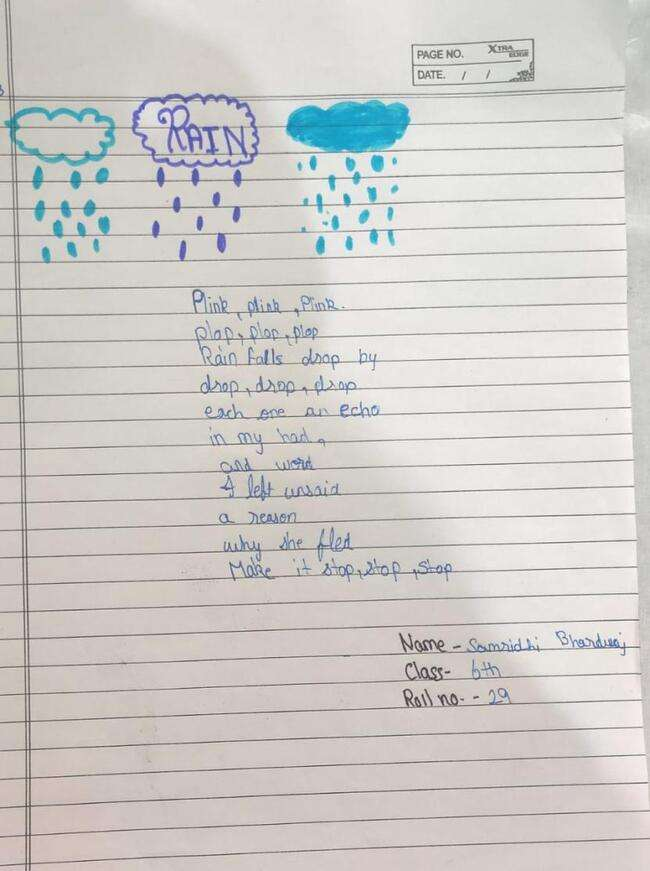 PAGE NO.
XTRA EDGE
DATE. / /
RAIN
Plink, plink, Plink.
plop, plop, plop
Rain falls drop by
drop, drop, drop
each one an echo
in my had,
and word
I left unsaid
a reason
why she fled
Make it stop, stop, stop
Name - Samridhi Bharduaj
Class- 6th
Roll no. - 29